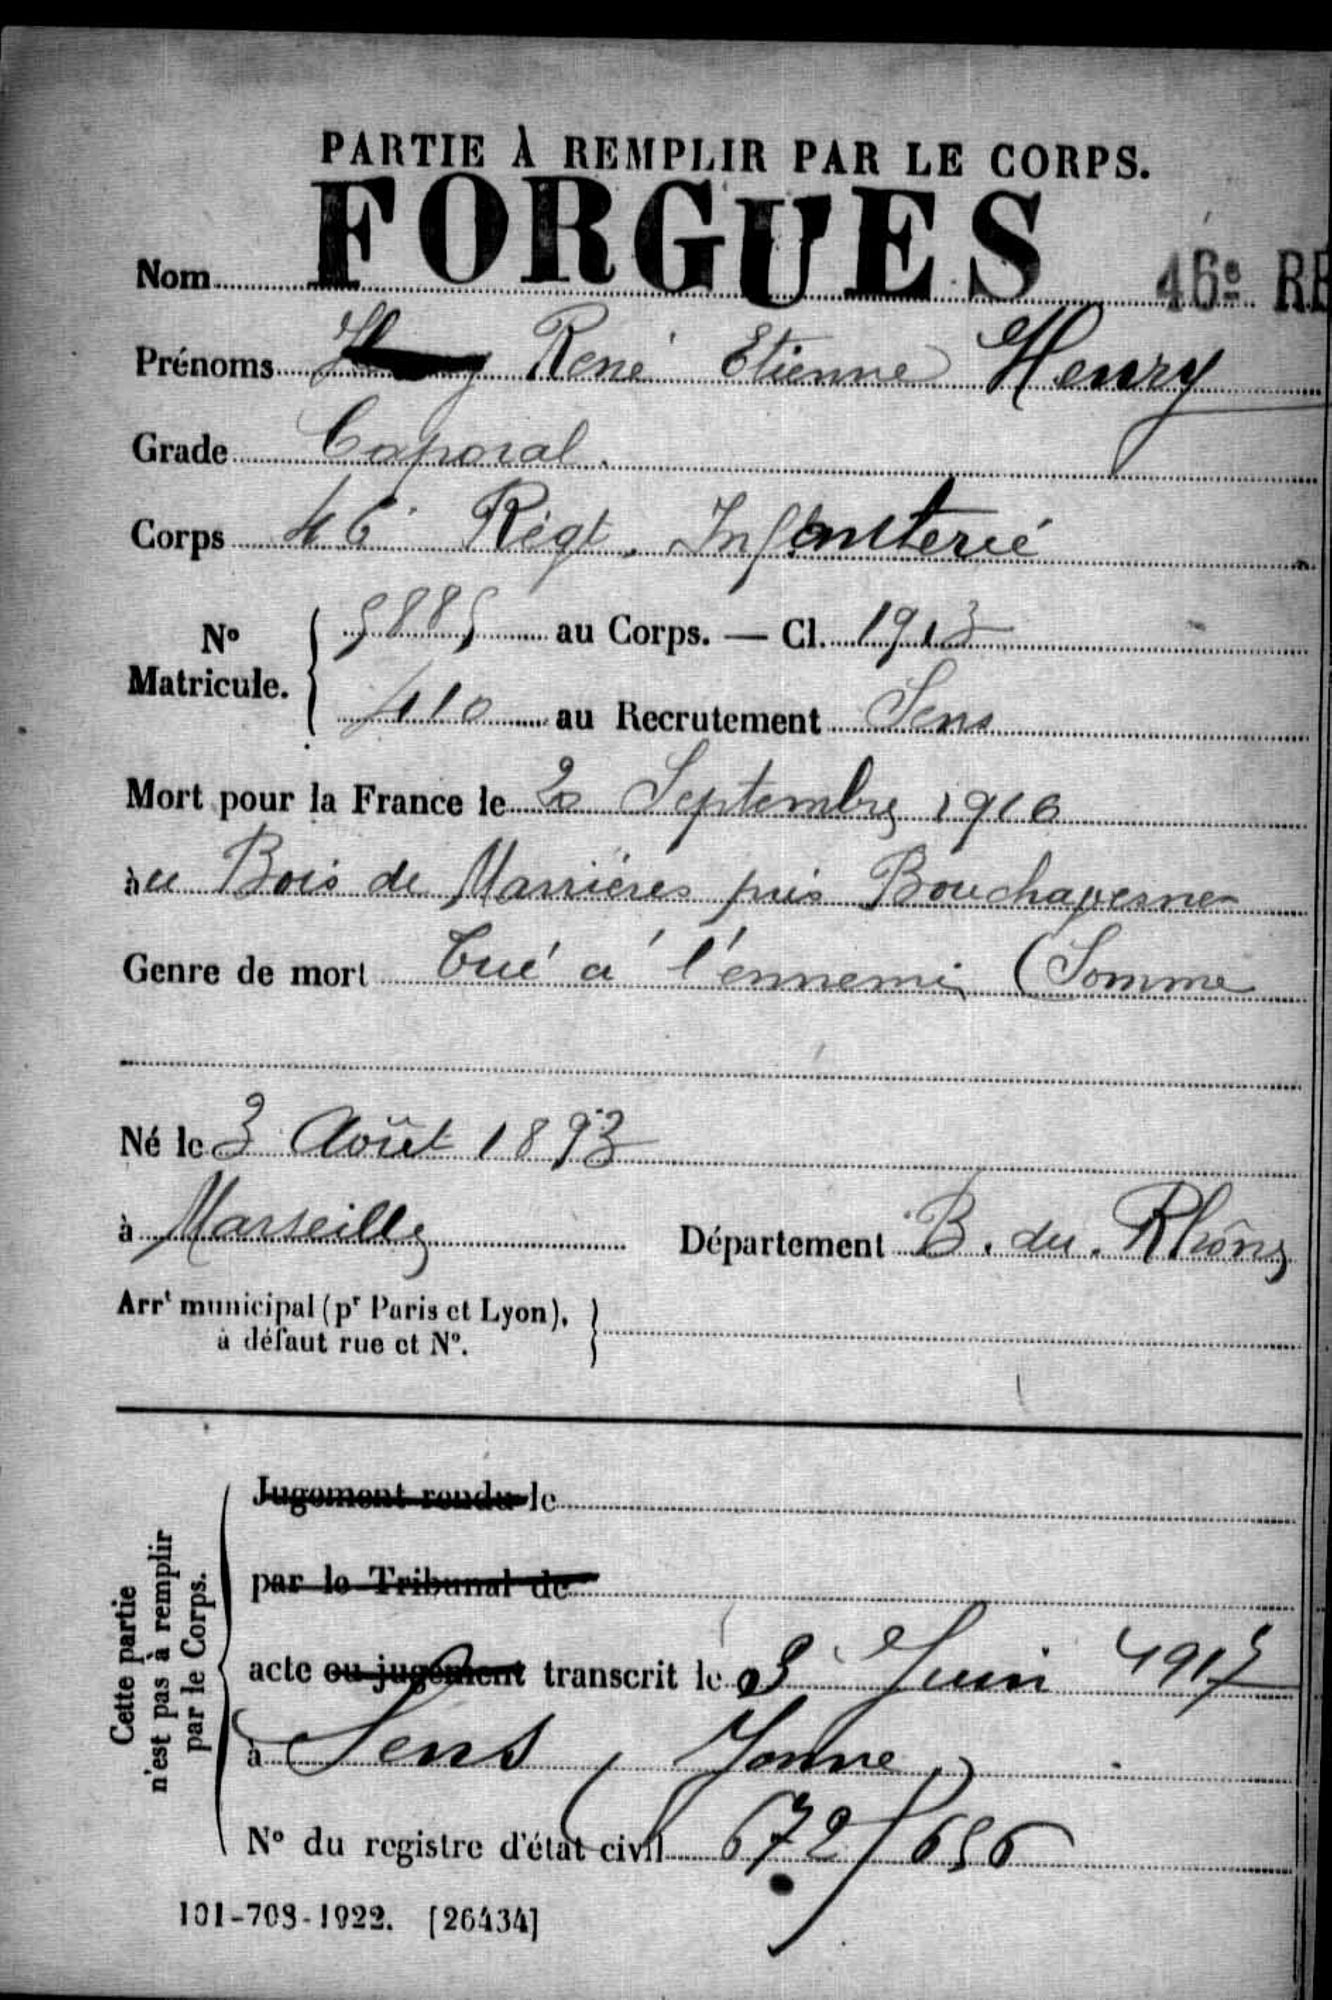 PARTIE À REMPLIR PAR LE CORPS.
FORGUES
Nom 46e RE
Prénoms René Etienne Henry
Grade Caporal.
Corps 46e Régt. Infanterie
No Matricule. 5885 au Corps. — Cl. 1913
410 au Recrutement Sens
Mort pour la France le 20 Septembre 1916
àu Bois de Marrières près Bouchavesnes
Genre de mort Tué à l'ennemi (Somme
Né le 3 Août 1893
à Marseille Département B. du. Rhône
Arrt municipal (pr Paris et Lyon),
à défaut rue et No.
Cette partie
n'est pas à remplir
par le Corps.
Jugement rendu le
par le Tribunal de
acte ou jugement transcrit le Juin 1917
à Sens (Yonne)
No du registre d'état civil 672/656
101-708-1922. [26434]